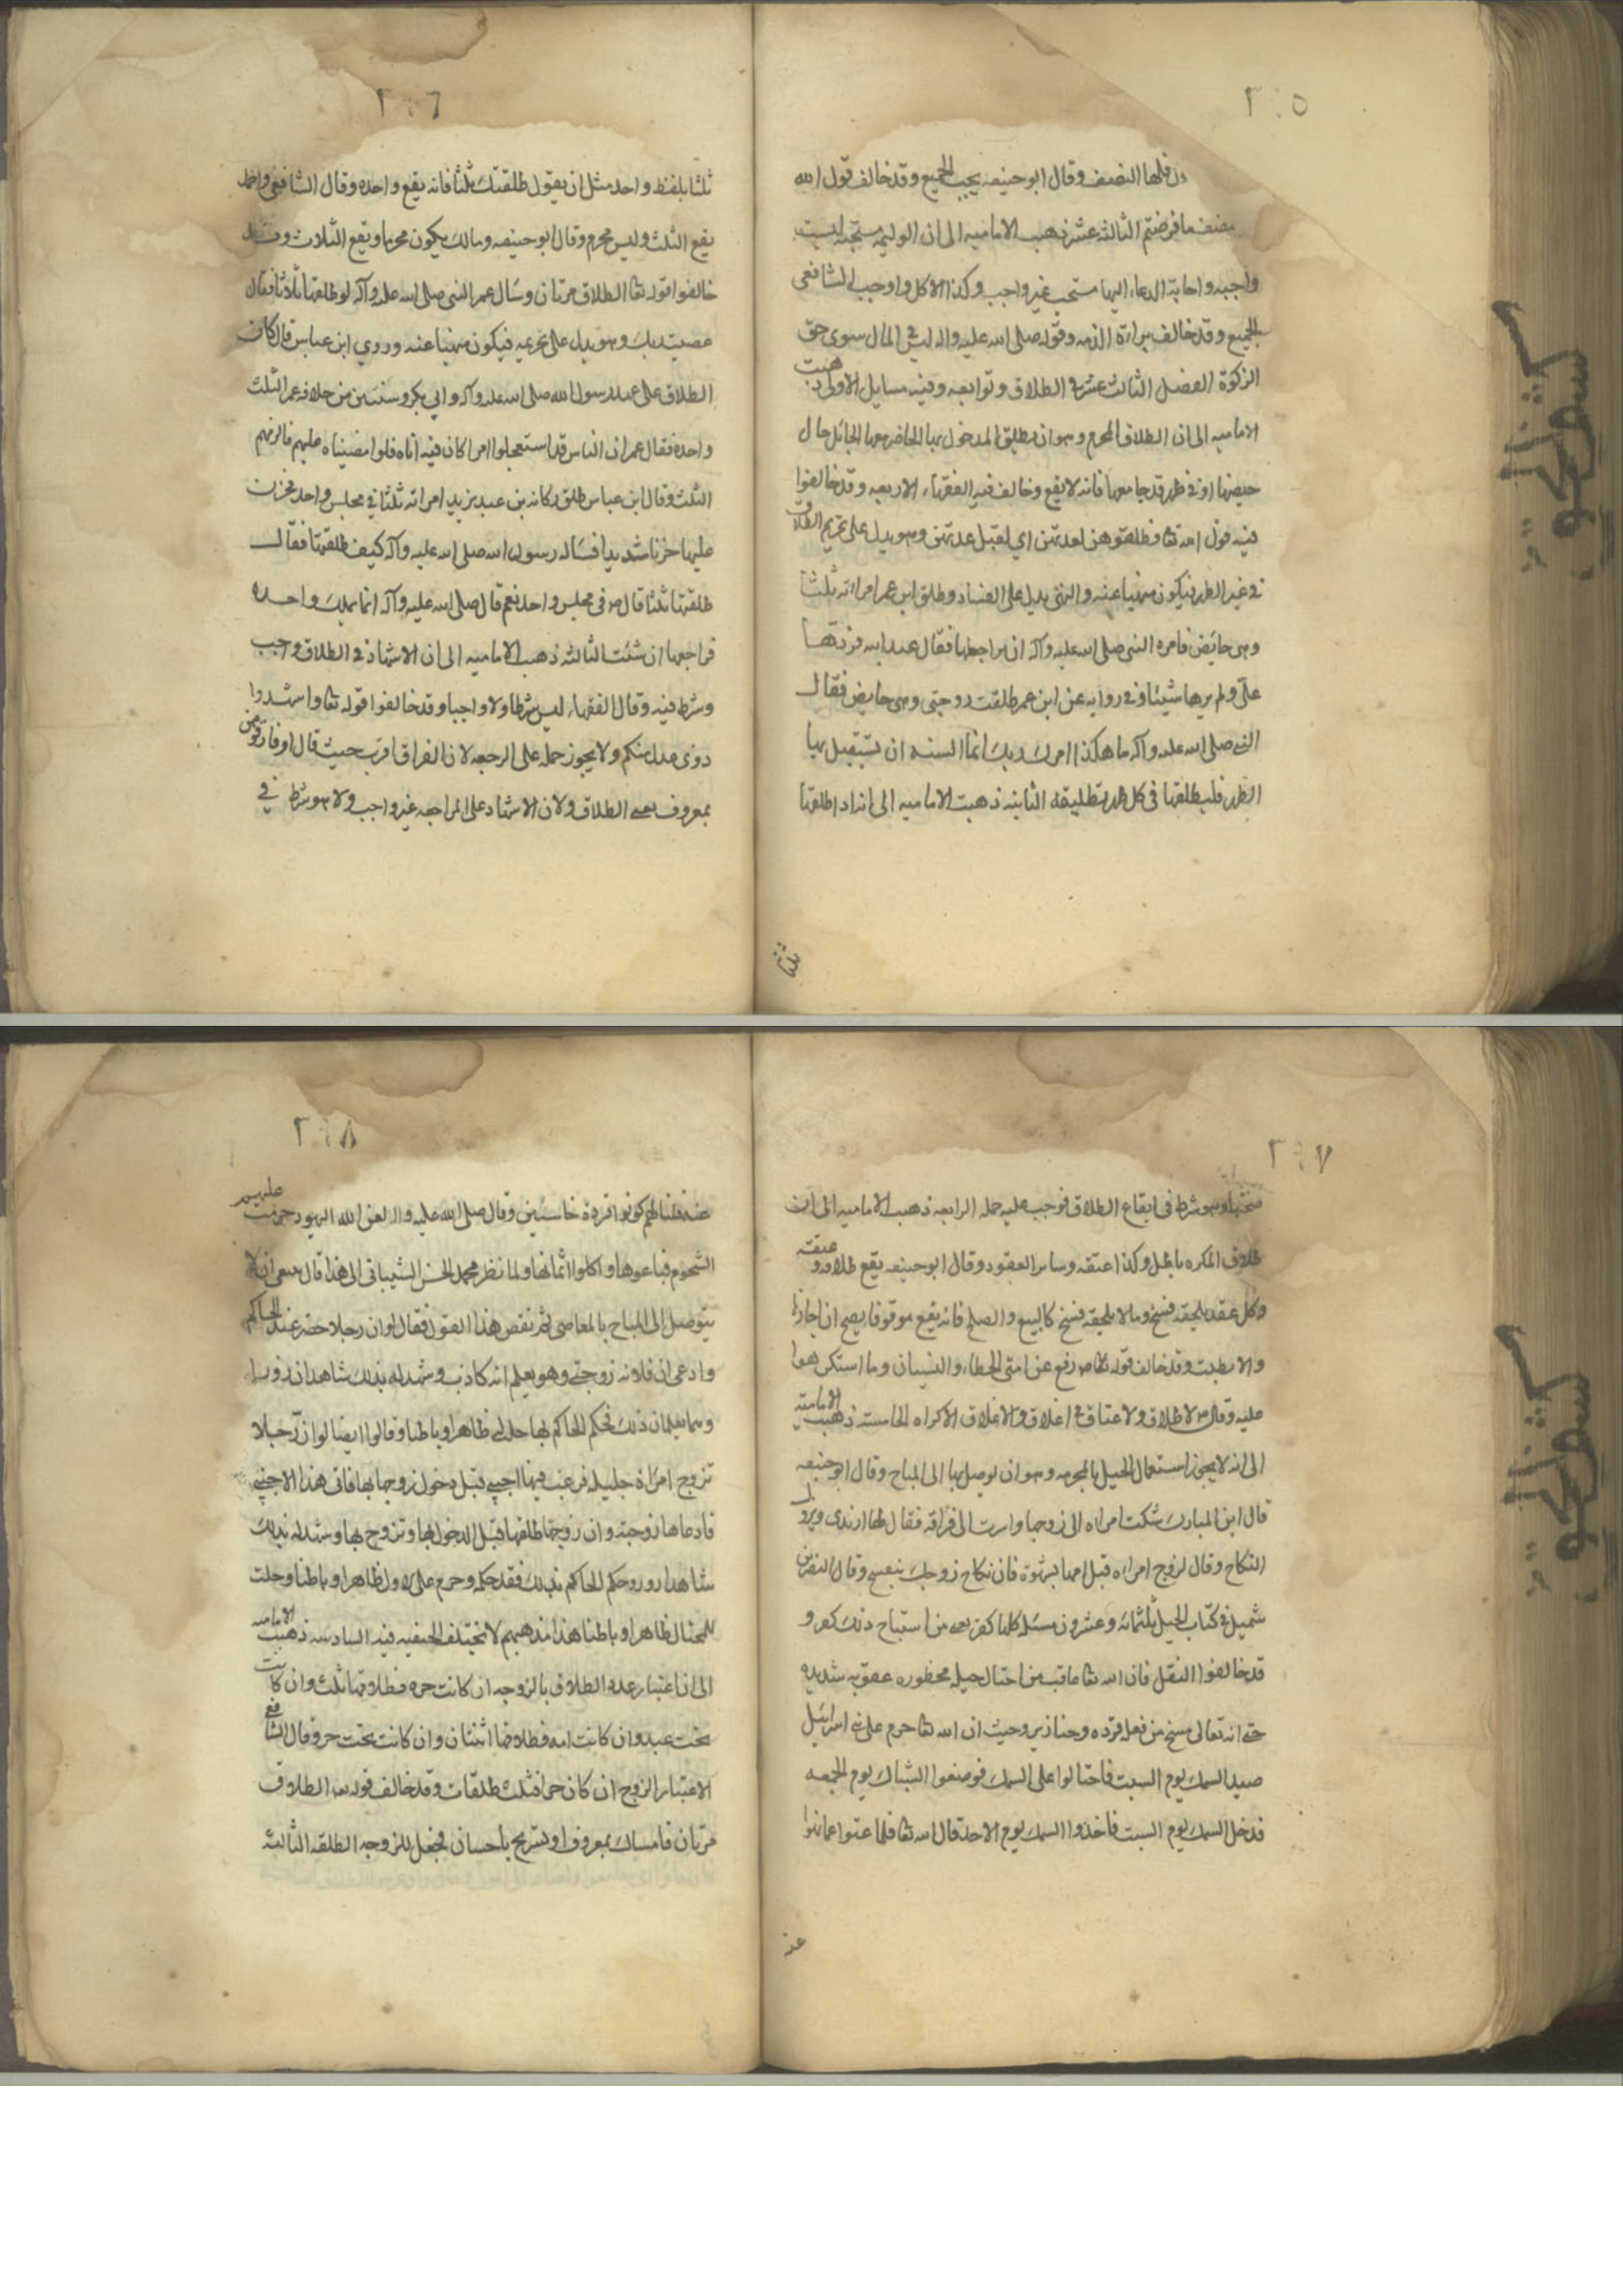 ٢٠٥
فلها النصف وقال ابوحنيفه يجب الجميع وقد خالف قول الله
فنصف ما فرضتم الثالثه عشر ذهبت الاماميه الى ان الوليمه مستحبه ليست
واجبه واجابة الدعاء اليها مستحب غير واجب وكذا الاكل واوجب الشافعى
الجميع وقد خالف براءة الذمه وقوله صلى الله عليه واله ليس في المال سوى حق
الزكوة الفصل الثالث عشر في الطلاق وتوابعه وفيه مسايل الاولى ذهبت
الاماميه الى ان الطلاق المحرم وهو ان يطلق المدخول بها الحاضر معها الحائل حال
حيضها او في طهر قد جامعها فانه لا يقع وخالف فيه الفقهاء الاربعه وقد خالفوا
فيه قول الله تعا فطلقوهن لعدتهن اي لقبل عدتهن وهو يدل على تحريم الطلاق
في غير الطهر فيكون منهيا عنه والنهى يدل على الفساد وطلق ابن عمر امراته ثلثا
وهى حايض فامره النبى صلى الله عليه وآله ان يراجعها فقال عبدالله فردها
على ولم يرها شيئا وفي روايه عن ابن عمر طلقت زوجتى وهى حايض فقال
النبى صلى الله عليه وآله ما هكذا امرك ربك انما السنه ان تستقبل بها
الطهر فليطلقها في كل طهر تطليقه الثانيه ذهبت الاماميه الى انه اذا طلقها
ثلثا
٢٠٦
ثلثا بلفظ واحد مثل ان يقول طلقتك ثلثا فانه يقع واحده وقال الشافعى واحمد
يقع الثلث وليس محرم وقال ابوحنيفه ومالك يكون محرما ويقع الثلاث وقد
خالفوا قوله تعا الطلاق مرتان وسال عمر النبى صلى الله عليه وآله لو طلقتها ثلاثا فقال
عصيت ربك وهو يدل على تحريمه فيكون منهيا عنه وروي ابن عباس قال كان
الطلاق على عهد رسول الله صلى الله عليه وآله وابي بكر وسنتين من خلافه عمر الثلث
واحده فقال عمر ان الناس قد استعجلوا امرا كان فيه اناه فلو امضيناه عليهم فالزمهم
الثلث وقال ابن عباس طلق ركانه بن عبد يزيد امراته ثلثا في مجلس واحد فحزن
عليها حزنا شديدا فساله رسول الله صلى الله عليه وآله كيف طلقتها فقال
طلقتها ثلثا قال ص في مجلس واحد نعم قال صلى الله عليه وآله انما تملك واحده
فراجعها ان شئت الثالثه ذهبت الاماميه الى ان الاشهاد في الطلاق واجب
وشرط فيه وقال الفقهاء ليس شرطا ولا واجبا وقد خالفوا قوله تعا واشهدوا
ذوى عدل منكم ولا يجوز حمله على الرجعه لان الفراق اقرب حيث قال او فارقوهن
بمعروف يعنى الطلاق ولان الاشهاد على المراجعه غير واجب ولا هو شرط في
٢٠٧
صحتها وهو شرط في ايقاع الطلاق فوجب عليه حمله الرابعه ذهبت الاماميه الى ان
طلاق المكره باطل وكذا عتقه وساير العقود وقال ابوحنيفه يقع طلاقه وعتقه
وكل عقد يلحقه فسخ وما لا يلحقه فسخ كالبيع والصلح فانه يقع موقوفا يصح ان اجازها
والا بطلت وقد خالف قوله ص رفع عن امتى الخطاء والنسيان وما استكرهوا
عليه وقال ص لا طلاق ولا عتاق في اغلاق والاغلاق الاكراه الخامسه ذهبت الاماميه
الى انه لا يجوز استعمال الحيل بالمحرمه وهو ان توصل بها الى المباح وقال ابوحنيفه
قال ابن المبارك شكت امراه الى زوجها وارت الى فراقه فقال لها ارتدى ويزول
النكاح وقال لزوج امراه قبل امها بشهوة فان نكاح زوجك ينفسخ وقال النضر بن
شميل في كتاب الحيل ثلثمائه وعشرون مسئله كلها كفر يعنى من استباح ذلك كفر و
قد خالفوا النقل فان الله تعا عاقب من احتال حيله محظوره عقوبه شديده
حتى انه تعالى مسخ من فعله قرده وخنازير وحيث ان الله تعا حرم على بنى اسرائيل
صيد السمك يوم السبت فاحتالوا على السمك فوضعوا الشباك يوم الجمعه
فدخل السمك يوم السبت فاخذوا السمك يوم الاحد قال الله تعا فلما عتوا عما نهوا
عنه
٢٠٨
عنه قلنا لهم كونوا قردة خاسئين وقال صلى الله عليه واله لعن الله اليهود حرمت عليهم
الشحوم فباعوها واكلوا اثمانها ولما نظر محمد الحسن الشيبانى الى هذا قال ينبغى ان لا
يتوصل الى المباح بالمعاصى ثم نقض هذا القول فقال لو ان رجلا حضر عند الحاكم
وادعى ان فلانه زوجتى وهو يعلم انه كاذب وشهد له بذلك شاهدان زورا
وهما يعلمان ذلك فحكم الحاكم بها حلت له ظاهرا وباطنا وقالوا ايضا لو ان رجلا
تزوج امراة جليله فرغب فيها اجنبى قبل دخول زوجها بها فاتى هذا الاجنبى
فادعاها زوجته وان زوجها طلقها قبل الدخول بها وتزوج بها وشهد له بذلك
شاهدا زور وحكم الحاكم بذلك نفذ حكمه وحرم على الاول ظاهرا وباطنا وحلت
للمحتال ظاهرا وباطنا هذا مذهبهم لا يختلف الحنفيه فيه السادسه ذهبت الاماميه
الى ان اعتبار عدد الطلاق بالزوجه ان كانت حره فطلاقها ثلث وان كانت
تحت عبد وان كانت امه فطلاقها اثنتان وان كانت تحت حر وقال الشافعى
الاعتبار الزوج ان كان حرا فثلث طلقات وقد خالف قوله تعا الطلاق
مرتان فامساك بمعروف او تسريح باحسان فجعل للزوجه الطلقه الثالثه